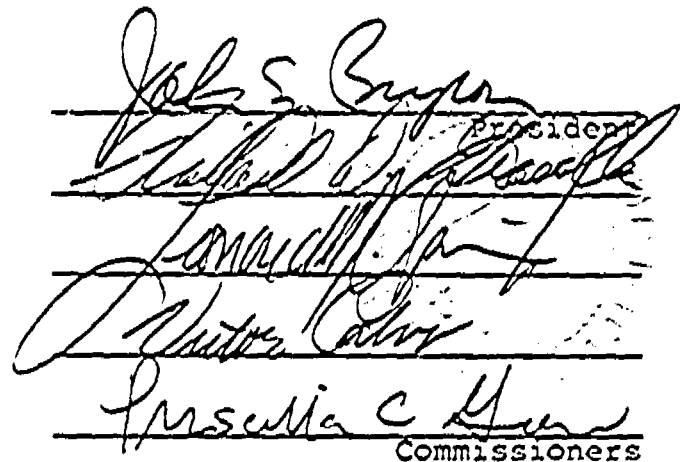 John E. Bryson
President
Leonard M. Grimes
Victor Calvo
Priscilla C Grew
Commissioners